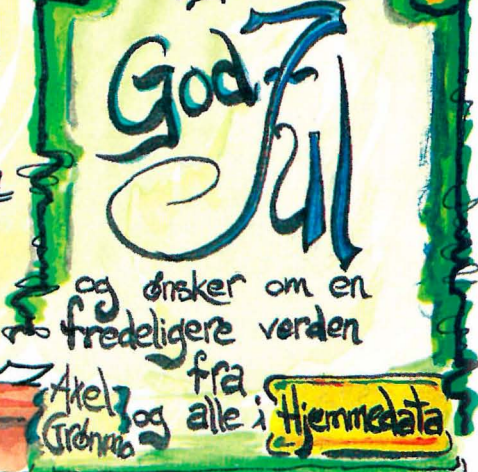 God
Jul
og ønsker om en
fredeligere verden
fra
Axel
og alle i Hjemmedata